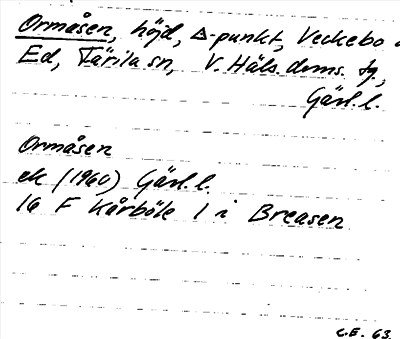 Ormåsen, höjd, △-punkt, Veckebo o
Ed, Färila sn, V. Häls. doms. tg,
Gävl. l.
Ormåsen
ek (1960) Gävl. l.
16 F Kårböle 1 i Breasen
C.E. 63.